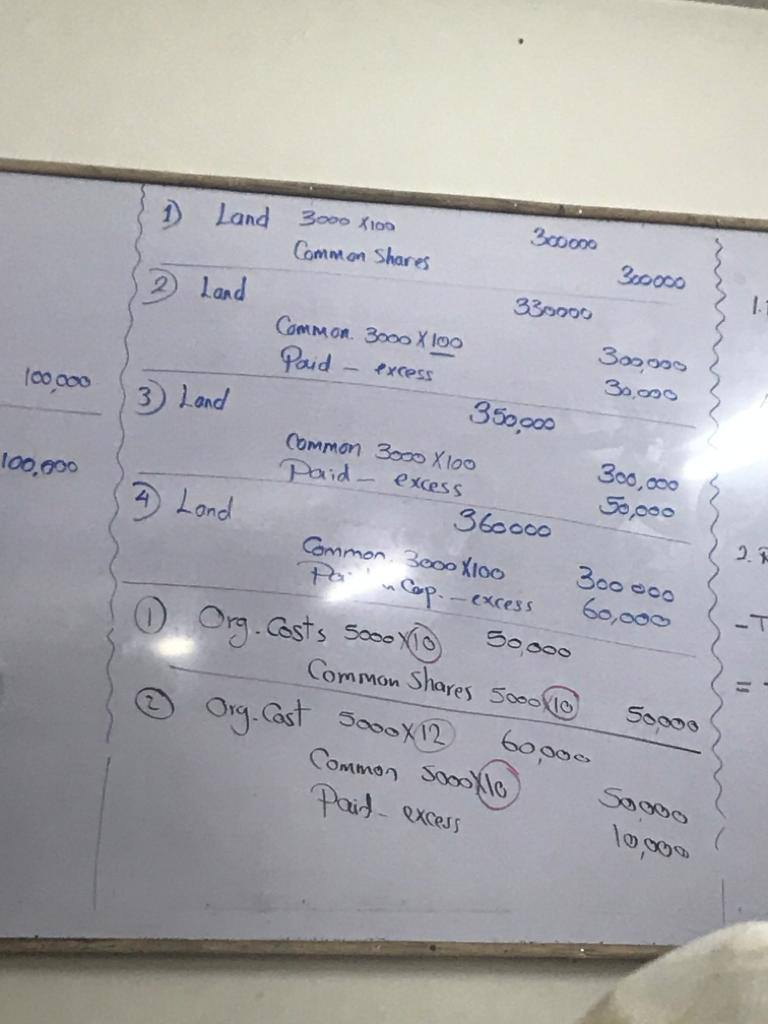 100,000
100,000
1) Land 3000 X100 300000
Common Shares 300000
2) Land 330000
Common. 3000 X 100 300,000
Paid - excess 30,000
3) Land 350,000
Common 3000 X100 300,000
Paid - excess 50,000
4) Land 360000
Common. 3000 X100 300000
Cap. - excess 60,000
1) Org. Costs 5000 X 10 50,000
Common Shares 5000 X 10 50,000
2) Org. Cost 5000 X 12 60,000
Common 5000 X 10 50,000
Paid - excess 10,000
1.
2.
-T
=